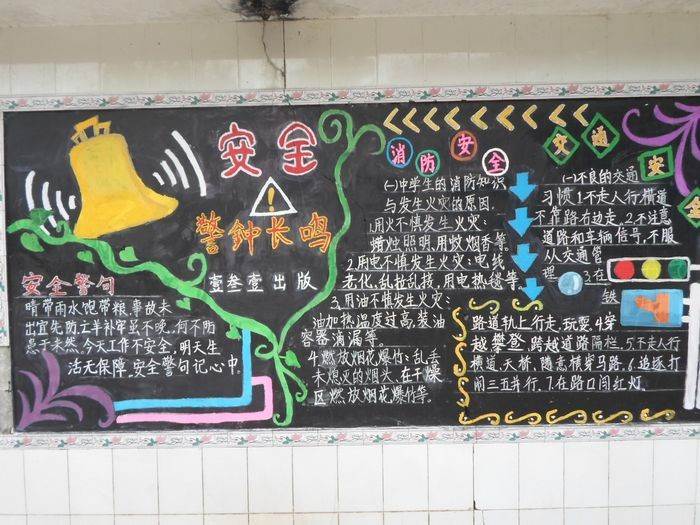 安全
警钟长鸣
壹叁壹出版
安全警句
晴带雨水饱带粮,事故未
出宜先防亡羊补牢虽不晚,何不防
患于未然,今天工作不安全,明天生
活无保障,安全警句记心中.
消防安全
㈠中学生的消防知识
与发生火灾的原因.
1.用火不慎发生火灾:
蜡烛照明,用蚊烟香等.
2.用电不慎发生火灾:电线
老化,乱拉乱扯,用电热毯等.
3.用油不慎发生火灾:
油加热温度过高,装油
容器滴漏等.
4.燃放烟花爆竹:乱丢
未熄灭的烟头,在干燥
区燃放烟花爆竹等.
交通安全
㈠不良的交通
习惯1.不走人行横道
不靠路右边走,2.不注意
道路和车辆信号,不服
从交通管
理 3.在
铁
路道轨上行走,玩耍.4.穿
越攀登 跨越道路隔栏.5.不走人行
横道、天桥,随意横穿马路.6.追逐打
闹三五并行.7.在路口闯红灯.